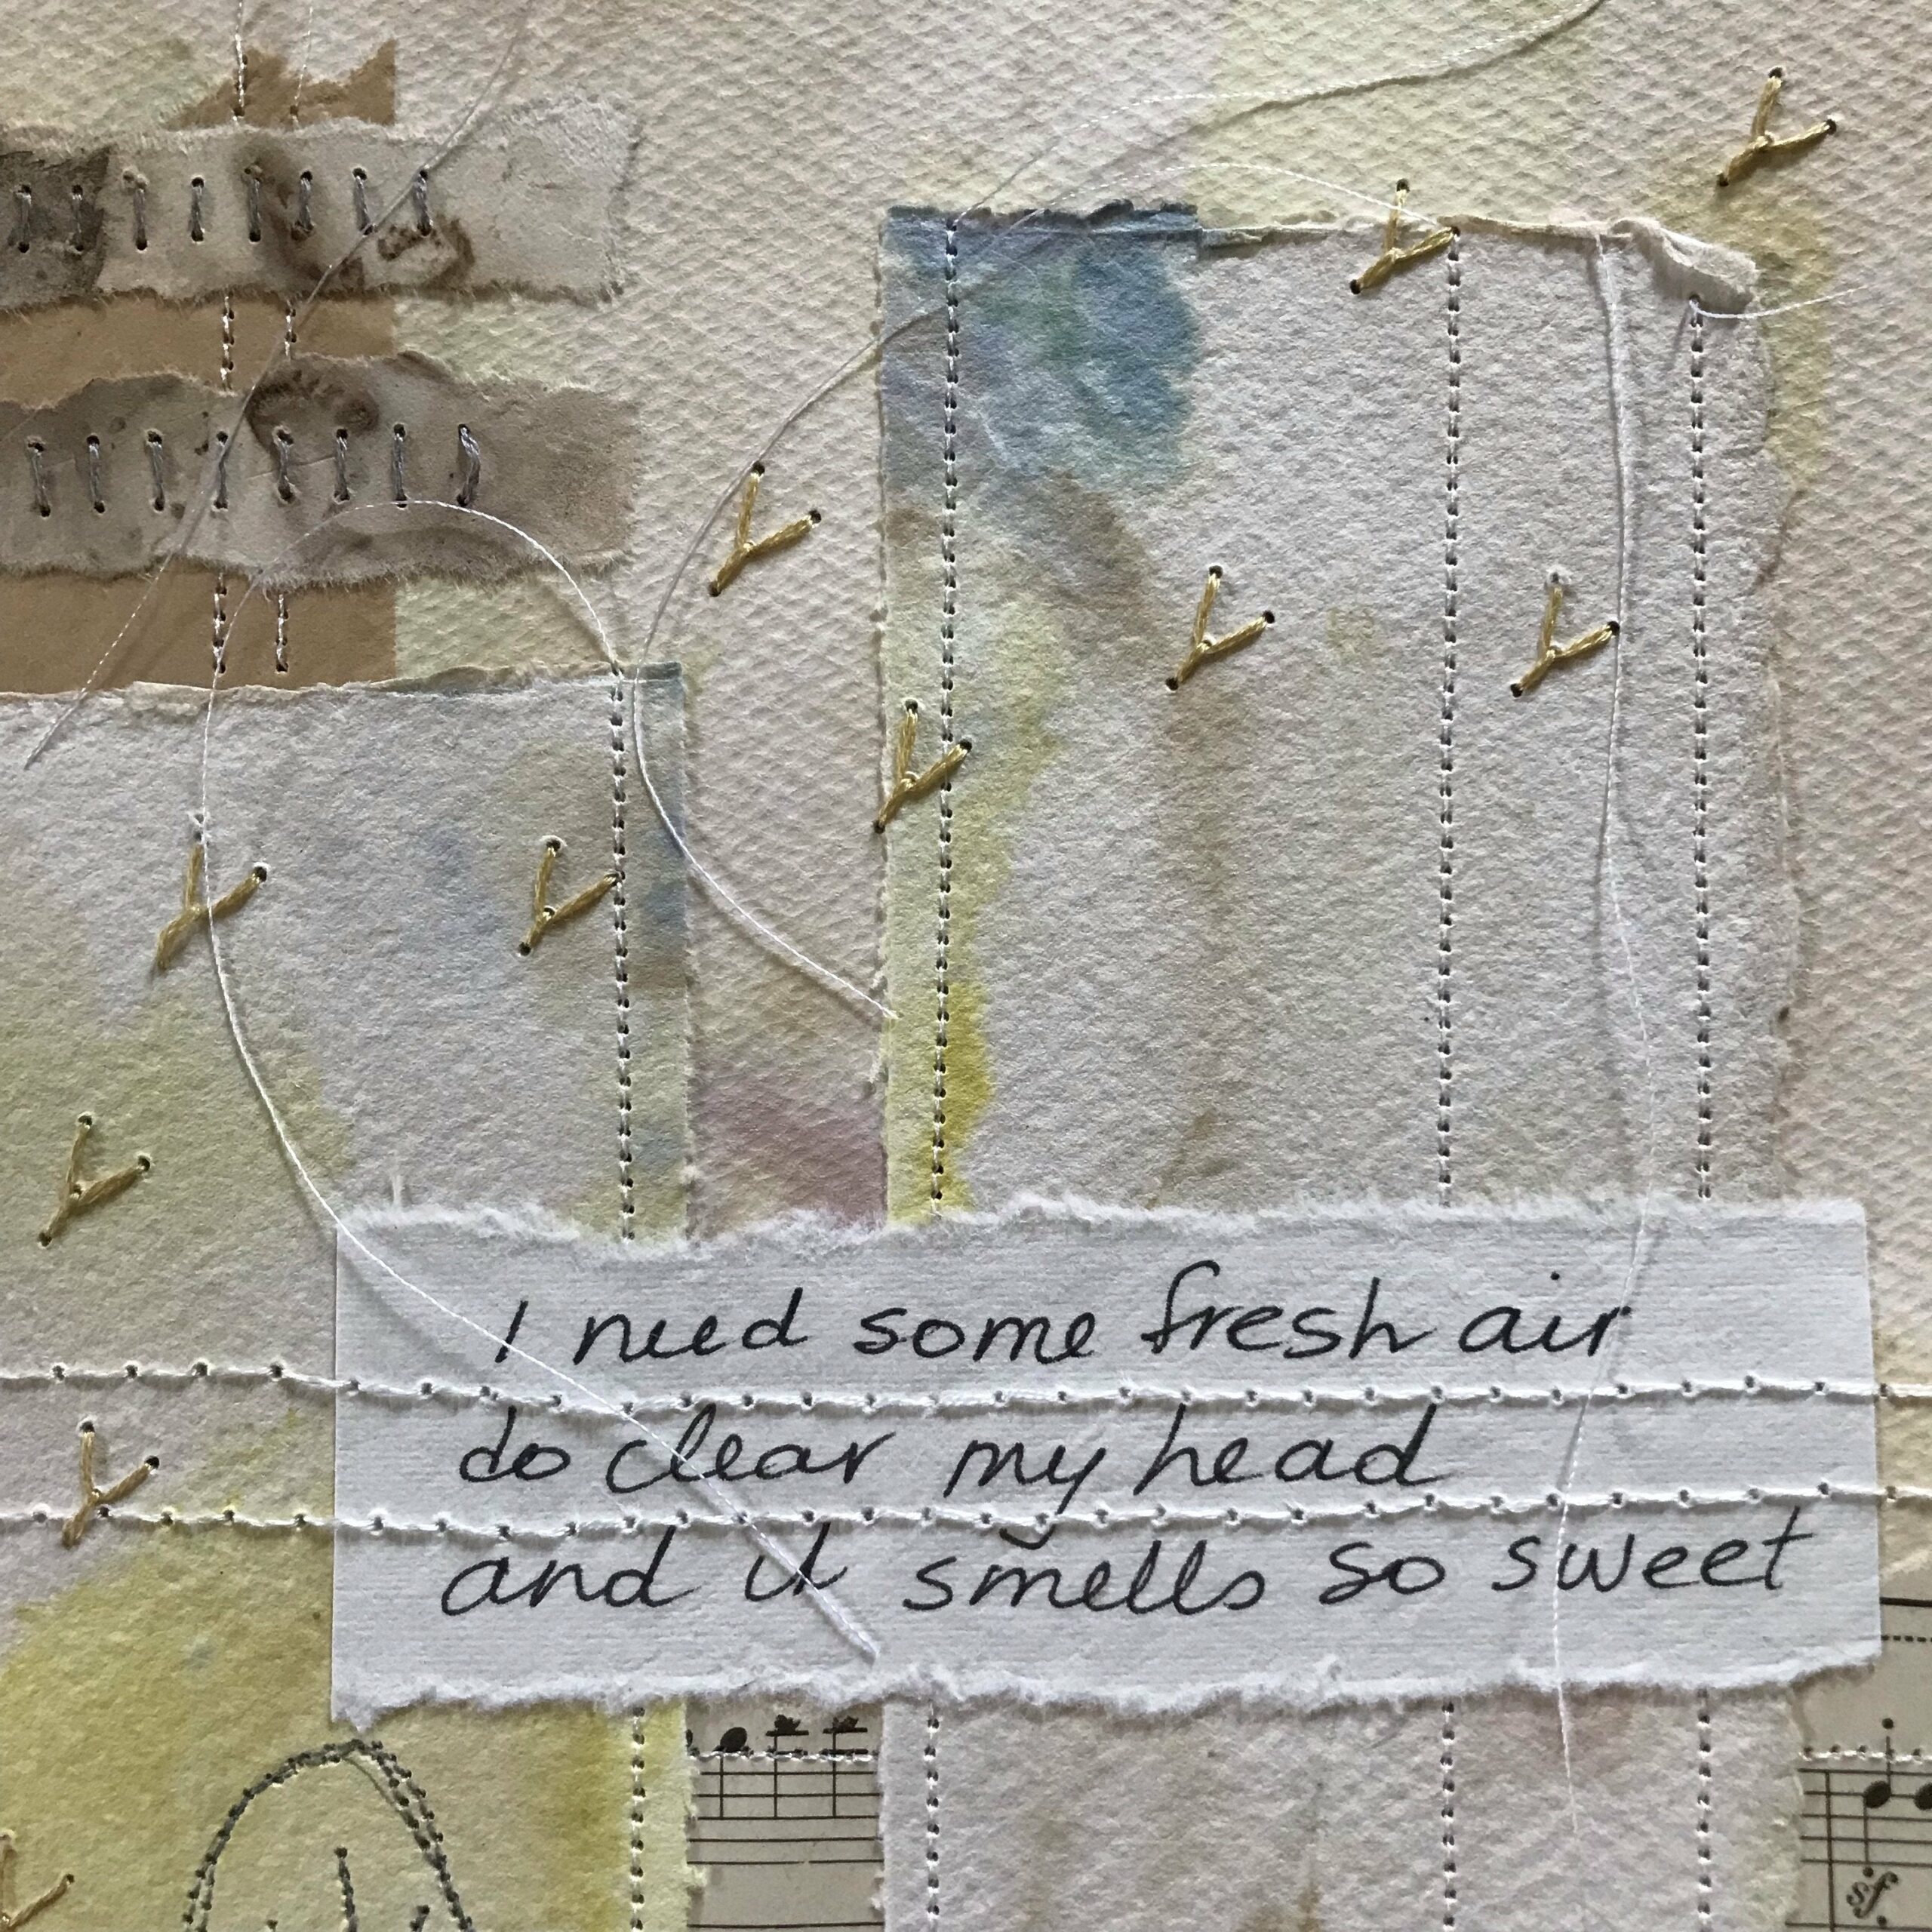 I need some fresh air
do clear my head
and it smells so sweet
sf